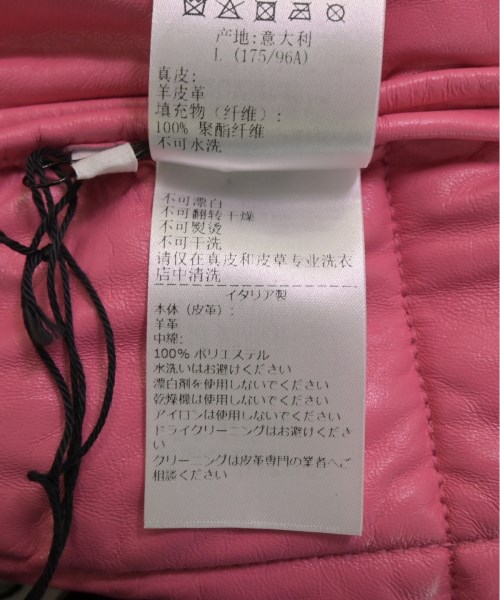 产地:意大利
L (175/96A)
真皮:
羊皮革
填充物(纤维):
100% 聚酯纤维
不可水洗
不可漂白
不可翻转干燥
不可熨烫
不可干洗
请仅在真皮和皮草专业洗衣
店中清洗
イタリア製
本体(皮革):
羊革
中綿:
100% ポリエステル
水洗いはお避けください
漂白剤を使用しないでください
乾燥機は使用しないでください
アイロンは使用しないでください
ドライクリーニングはお避けくださ
い
クリーニングは皮革専門の業者へご
相談ください